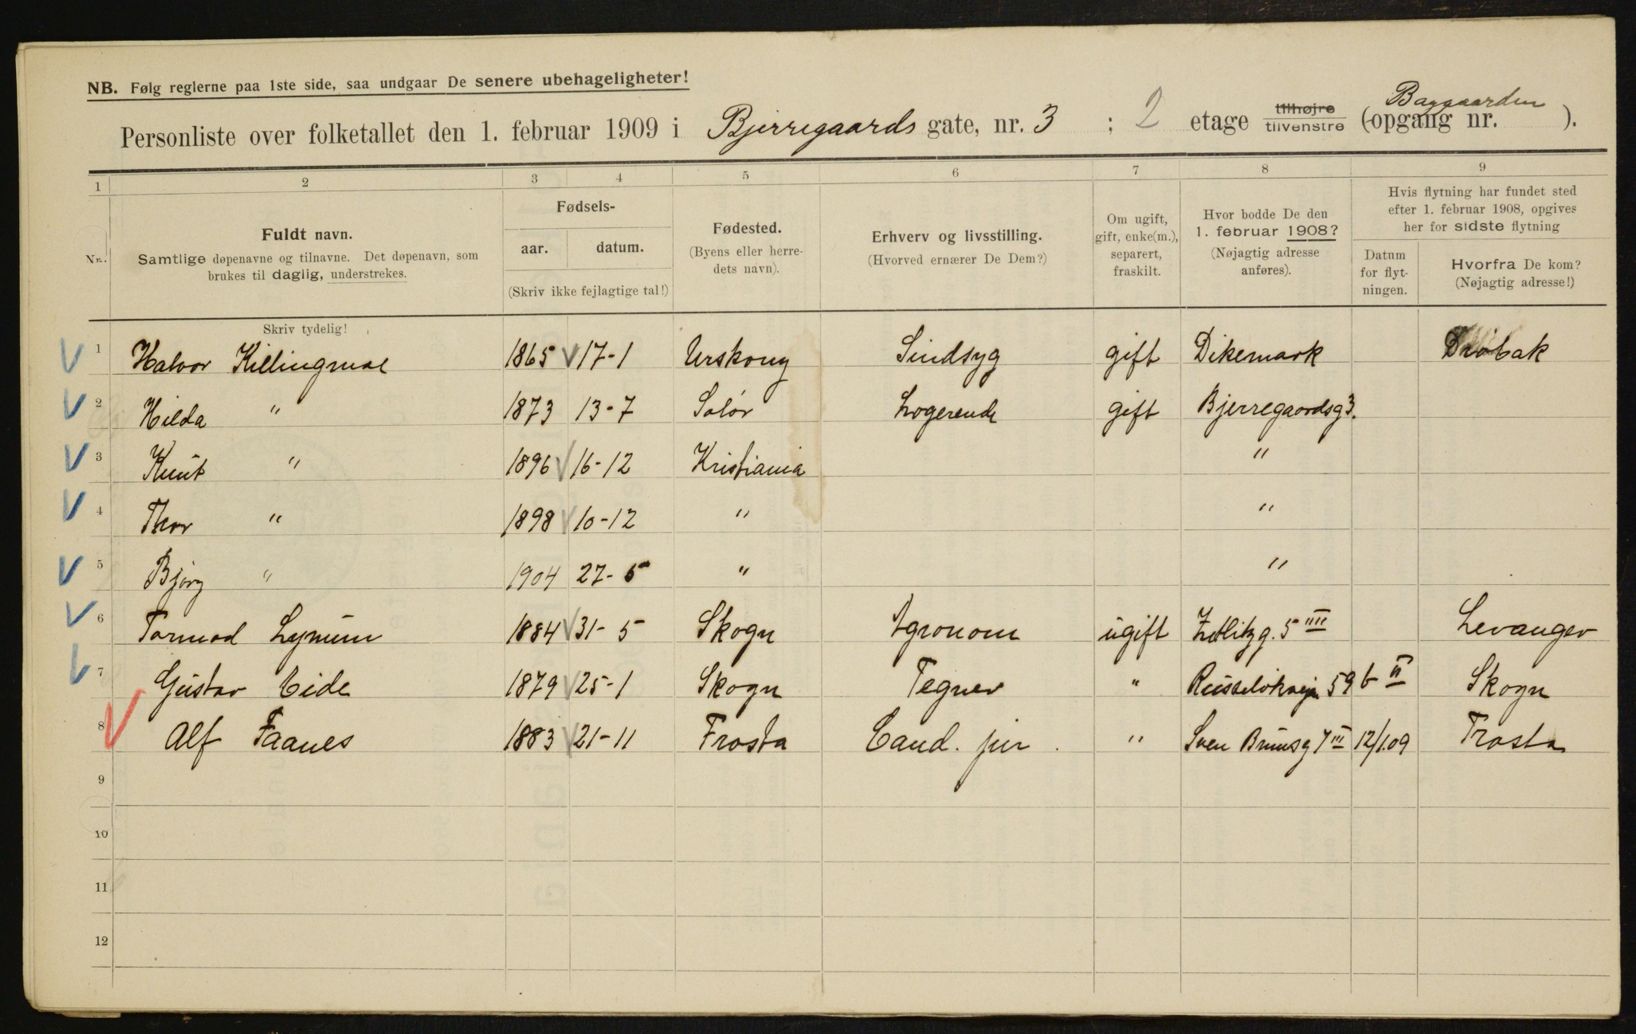 NB. Følg reglerne paa 1ste side, saa undgaar De senere ubehageligheter!
Personliste over folketallet den 1. februar 1909 i Bjerregaards gate, nr. 3 ; 2 etage tilhøjre tilvenstre (opgang nr. Baggaarden ).
1 2 3 4 5 6 7 8 9
Nr. Fuldt navn. Samtlige døpenavne og tilnavne. Det døpenavn, som brukes til daglig, understrekes.
Fødsels- aar. datum. (Skriv ikke fejlagtige tal!)
Fødested. (Byens eller herredets navn).
Erhverv og livsstilling. (Hvorved ernærer De Dem?)
Om ugift, gift, enke(m.), separert, fraskilt.
Hvor bodde De den 1. februar 1908? (Nøjagtig adresse anføres).
Hvis flytning har fundet sted efter 1. februar 1908, opgives her for sidste flytning
Datum for flytningen.
Hvorfra De kom? (Nøjagtig adresse!)
Skriv tydelig!
1 Halvor Killingmoe 1865 17-1 Urskoug Sindsyg gift Dikemark Drøbak
2 Hilda " 1873 13-7 Solør Logerende gift Bjerregaardsg 3.
3 Knut " 1896 16-12 Kristiania "
4 Thor " 1898 10-12 " "
5 Bjørg " 1904 27-5 " "
6 Tormod Lynum 1884 31-5 Skogn Agronom ugift Zetlitzg. 5 IIII Levanger
7 Gustav Eide 1879 25-1 Skogn Tegner " 59 b II Skogn
8 Alf Faanes 1883 21-11 Frosta Cand. jur. " Sven Brunsg 7 III 12/1.09 Frosta
9
10
11
12